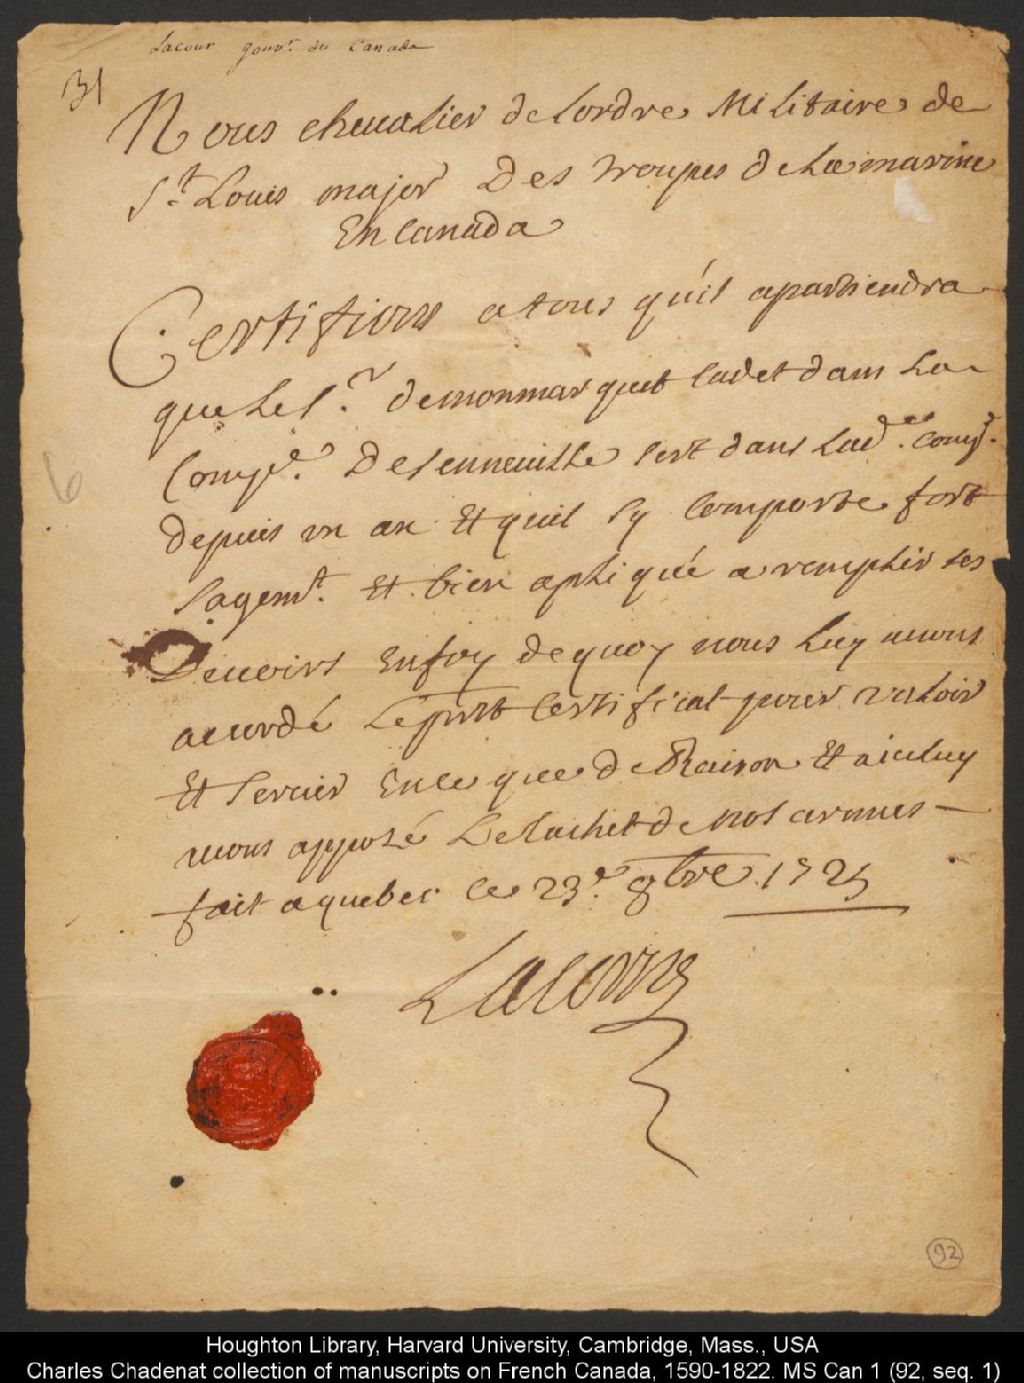 Lacour gouvr. du Canada
31
Nous cheualier de lordre Militaire de
St. Louis major Des troupes de La marine
En Canada
Certifions a tous quil apartiendra
que Le Sr. demonmarquet Cadet dans La
Compe. De Senneuille sert dans Lade. Compe.
depuis vn an Et quil sy Comporte fort
Sagemt. Et bien apliqué a remplir ses
Deuoirs En foy de quoy nous Luy auons
acordé Le prnt Certificat pour valoir
Et Seruir En ce que de Raison Et a iceluy
auons apposé Le Cachet de Nos armes
fait a quebec le 23e. 8bre. 1725
Lacorne
6
92
Houghton Library, Harvard University, Cambridge, Mass., USA
Charles Chadenat collection of manuscripts on French Canada, 1590-1822. MS Can 1 (92, seq. 1)